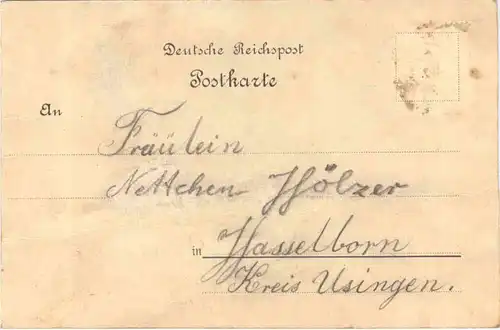 Deutsche Reichspost
Postkarte
An
Fräulein
Nettchen Hölzer
in Hasselborn
Kreis Usingen.